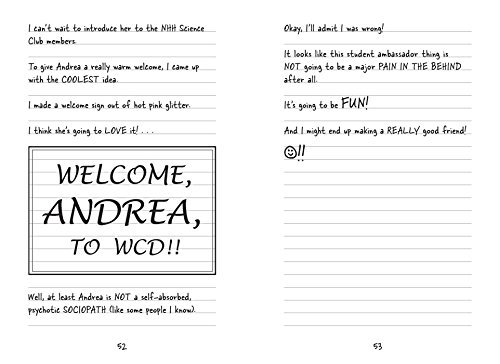 I can't wait to introduce her to the NHH Science
Club members.
To give Andrea a really warm welcome, I came up
with the COOLEST idea.
I made a welcome sign out of hot pink glitter.
I think she's going to LOVE it! . . .
WELCOME,
ANDREA,
TO WCD!!
Well, at least Andrea is NOT a self-absorbed,
psychotic SOCIOPATH (like some people I know).
52
Okay, I'll admit I was wrong!
It looks like this student ambassador thing is
NOT going to be a major PAIN IN THE BEHIND
after all.
It's going to be FUN!
And I might end up making a REALLY good friend!
☺!!
53